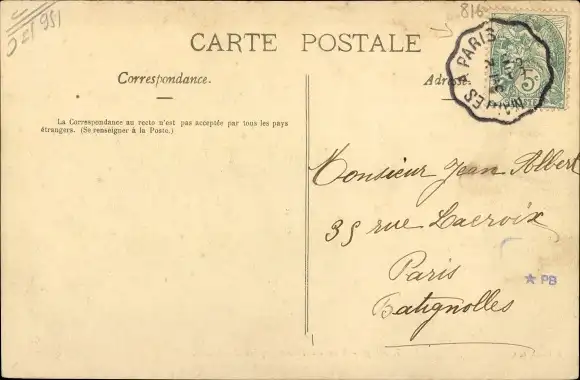 951
816
CARTE POSTALE
Correspondance.
Adresse
La Correspondance au recto n'est pas acceptée par tous les pays
étrangers. (Se renseigner à la Poste.)
A PARIS
5
Monsieur Jean Albert
35 rue Lacroix
Paris
Batignolles
★ PB